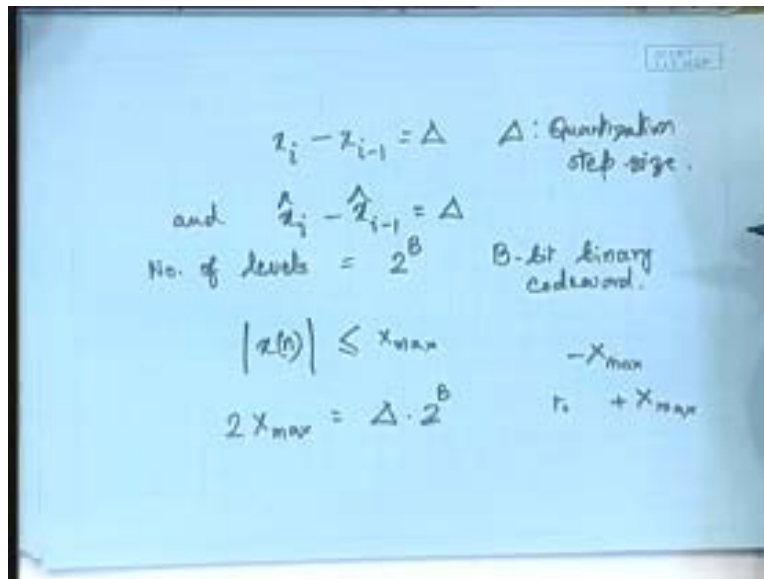 x_i − x_{i-1} = Δ   Δ : Quantization step size.
and x̂_i − x̂_{i-1} = Δ
No. of levels = 2^B   B-bit binary codeword.
|x(n)| ≤ X_max   −X_max
2 X_max = Δ · 2^B   to + X_max